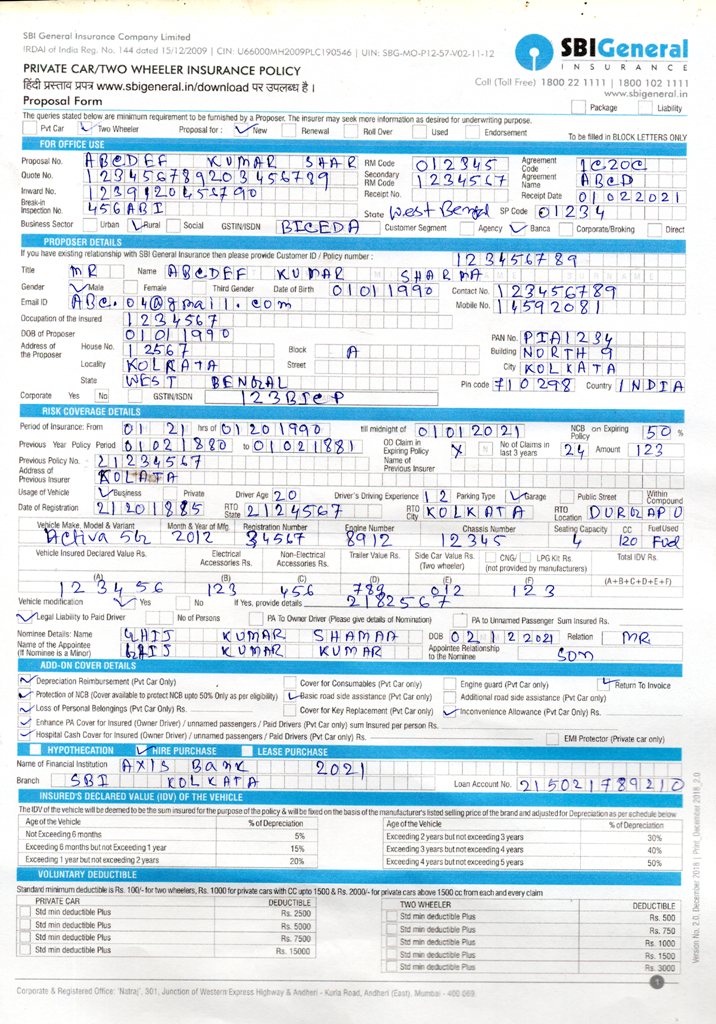 SBI General Insurance Company Limited
IRDAI of India Reg. No. 144 dated 15/12/2009 | CIN: U66000MH2009PLC190546 | UIN: SBG-MO-P12-57-V02-11-12
SBIGeneral
INSURANCE
PRIVATE CAR/TWO WHEELER INSURANCE POLICY
Call (Toll Free) 1800 22 1111 | 1800 102 1111
हिंदी प्रस्ताव प्रपत्र www.sbigeneral.in/download पर उपलब्ध है ।
www.sbigeneral.in
Proposal Form
Package Liability
The queries stated below are minimum requirement to be furnished by a Proposer. The insurer may seek more information as desired for underwriting purpose.
Pvt Car Two Wheeler Proposal for : New Renewal Roll Over Used Endorsement To be filled in BLOCK LETTERS ONLY
FOR OFFICE USE
Proposal No. ABCDEF KUMAR SHAR RM Code 012345 Agreement Code 1C20C
Quote No. 12345678920 3456789 Secondary RM Code 1234567 Agreement Name ABCD
Inward No. Receipt No. Receipt Date 01022021
Break-in Inspection No. 456ABI State West Bengal SP Code 01234
Business Sector Urban Rural Social GSTIN/ISDN BICEDA Customer Segment Agency Banca Corporate/Broking Direct
PROPOSER DETAILS
If you have existing relationship with SBI General Insurance then please provide Customer ID / Policy number : 123456789
Title MR Name ABCDEF KUMAR SHARMA
Gender Male Female Third Gender Date of Birth 01011990 Contact No. 123456789
Email ID ABC.04@gmail.com Mobile No. 14592081
Occupation of the Insured 1234567
DOB of Proposer 01011990 PAN No. PIA1234
Address of the Proposer House No. 12567 Block A Building NORTH 9
Locality KOLKATA Street City KOLKATA
State WEST BENGAL Pin code 710298 Country INDIA
Corporate Yes No GSTIN/ISDN 123BICP
RISK COVERAGE DETAILS
Period of Insurance: From 01 21 hrs of 01201990 till midnight of 01012021 NCB on Expiring Policy 50 %
Previous Year Policy Period 01021880 to 01021881 OD Claim in Expiring Policy Y N No of Claims in last 3 years 24 Amount 123
Previous Policy No. 21234567 Name of Previous Insurer
Address of Previous Insurer KOLATA
Usage of Vehicle Business Private Driver Age 20 Driver's Driving Experience 12 Parking Type Garage Public Street Within Compound
Date of Registration 21201885 RTO State 2124567 RTO City KOLKATA RTO Location DURGAPU
Vehicle Make, Model & Variant Month & Year of Mfg. Registration Number Engine Number Chassis Number Seating Capacity CC Fuel Used
Activa 5G 2012 34567 8912 12345 4 120 Fuel
Vehicle Insured Declared Value Rs. Electrical Accessories Rs. Non-Electrical Accessories Rs. Trailer Value Rs. Side Car Value Rs. (Two wheeler) CNG/ LPG Kit Rs. (not provided by manufacturers) Total IDV Rs.
(A) (B) (C) (D) (E) (F) (A+B+C+D+E+F)
123456 123 456 789 012 123
Vehicle modification Yes No If Yes, provide details 2182567
Legal Liability to Paid Driver No of Persons PA To Owner Driver (Please give details of Nomination) PA to Unnamed Passenger Sum Insured Rs.
Nominee Details: Name GHIJ KUMAR SHAMAA DOB 02122021 Relation MR
Name of the Appointee (If Nominee is a Minor) GHIJ KUMAR KUMAR Appointee Relationship to the Nominee SON
ADD-ON COVER DETAILS
Depreciation Reimbursement (Pvt Car Only) Cover for Consumables (Pvt Car Only) Engine guard (Pvt Car only) Return To Invoice
Protection of NCB (Cover available to protect NCB upto 50% Only as per eligibility) Basic road side assistance (Pvt Car only) Additional road side assistance (Pvt Car only)
Loss of Personal Belongings (Pvt Car Only) Rs. Cover for Key Replacement (Pvt Car Only) Inconvenience Allowance (Pvt Car Only) Rs.
Enhance PA Cover for Insured (Owner Driver) / unnamed passengers / Paid Drivers (Pvt Car only) sum Insured per person Rs.
Hospital Cash Cover for Insured (Owner Driver) / unnamed passengers / Paid Drivers (Pvt Car only) Rs. EMI Protector (Private car only)
HYPOTHECATION HIRE PURCHASE LEASE PURCHASE
Name of Financial Institution AXIS BANK 2021
Branch SBI KOLKATA Loan Account No. 215021789210
INSURED'S DECLARED VALUE (IDV) OF THE VEHICLE
The IDV of the vehicle will be deemed to be the sum insured for the purpose of the policy & will be fixed on the basis of the manufacturer's listed selling price of the brand and adjusted for Depreciation as per schedule below
Age of the Vehicle % of Depreciation Age of the Vehicle % of Depreciation
Not Exceeding 6 months 5% Exceeding 2 years but not exceeding 3 years 30%
Exceeding 6 months but not Exceeding 1 year 15% Exceeding 3 years but not exceeding 4 years 40%
Exceeding 1 year but not exceeding 2 years 20% Exceeding 4 years but not exceeding 5 years 50%
VOLUNTARY DEDUCTIBLE
Standard minimum deductible is Rs. 100/- for two wheelers, Rs. 1000 for private cars with CC upto 1500 & Rs. 2000/- for private cars above 1500 cc from each and every claim
PRIVATE CAR DEDUCTIBLE TWO WHEELER DEDUCTIBLE
Std min deductible Plus Rs. 2500 Std min deductible Plus Rs. 500
Std min deductible Plus Rs. 5000 Std min deductible Plus Rs. 750
Std min deductible Plus Rs. 7500 Std min deductible Plus Rs. 1000
Std min deductible Plus Rs. 15000 Std min deductible Plus Rs. 1500
Std min deductible Plus Rs. 3000
Version No. 2.0, December 2018 | Print_December 2018_2.0
1
Corporate & Registered Office: 'Natraj', 301, Junction of Western Express Highway & Andheri - Kurla Road, Andheri (East), Mumbai - 400 069